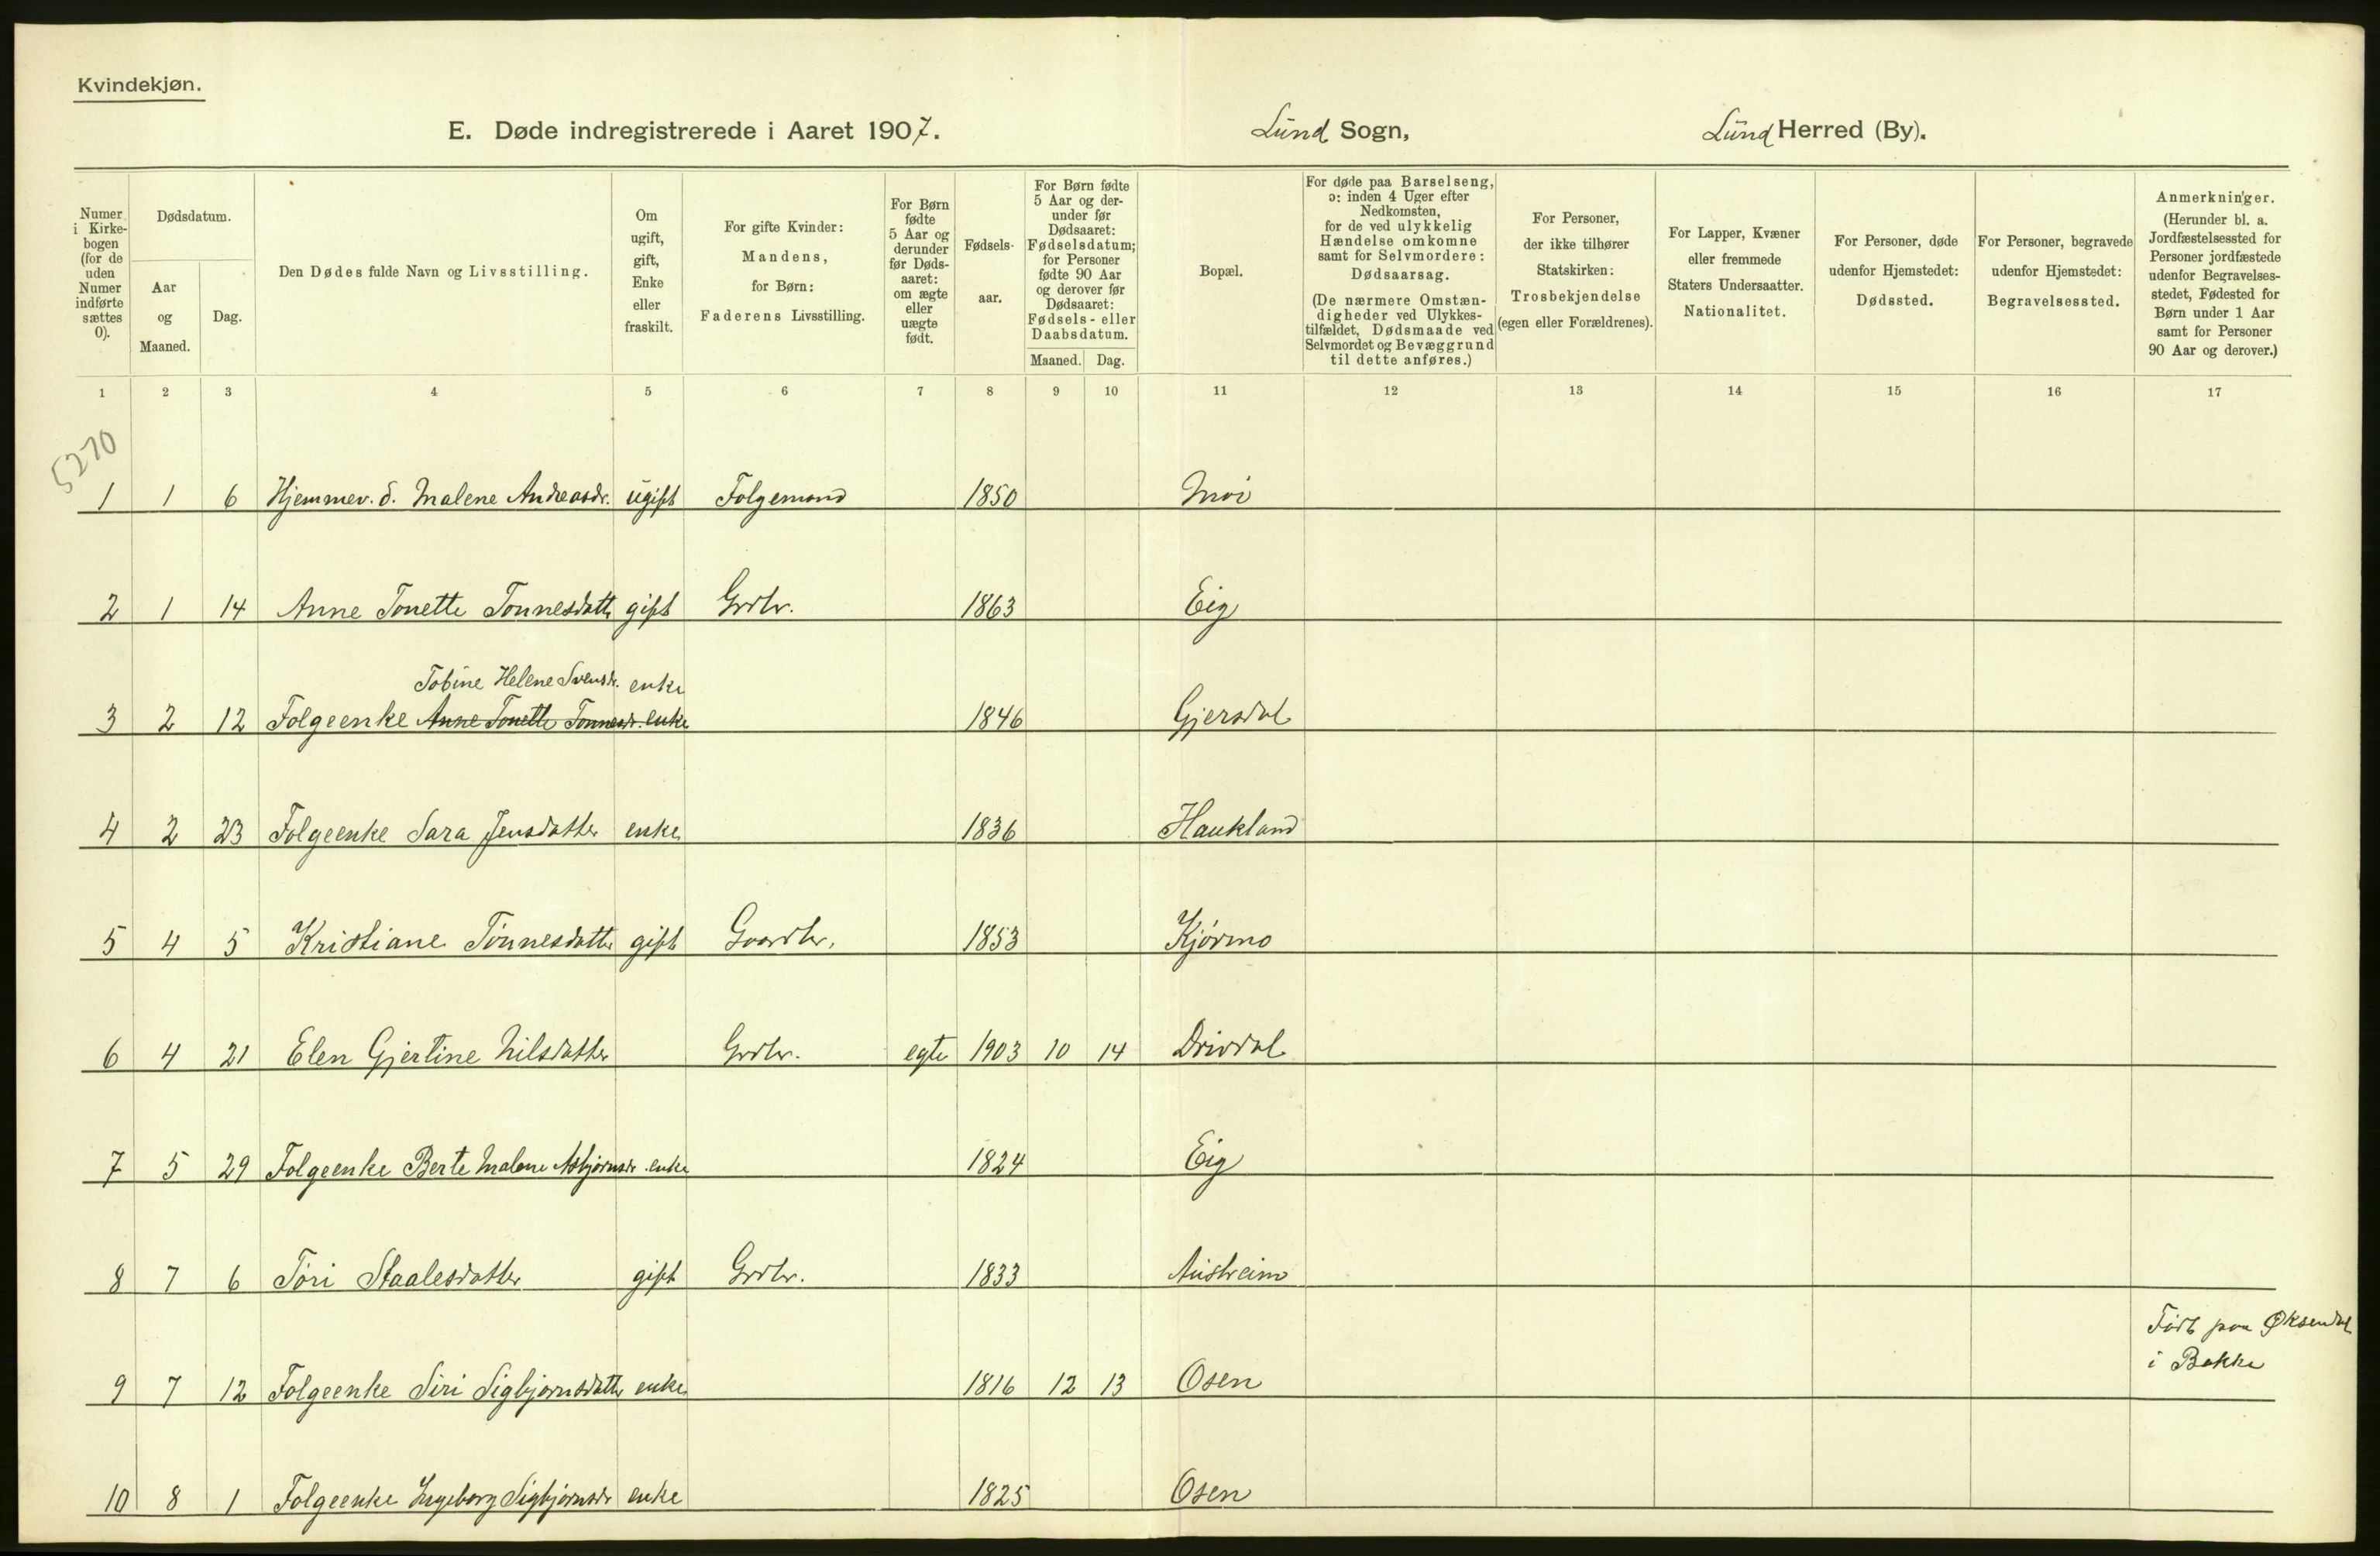 Kvindekjøn.
E. Døde indregistrerede i Aaret 1907. Lund Sogn, Lund Herred (By).
Numer i Kirke-bogen (for de uden Numer indførte sættes 0).
Dødsdatum.
Aar og Maaned.
Dag.
Den Dødes fulde Navn og Livsstilling.
Om ugift, gift, Enke eller fraskilt.
For gifte Kvinder: Mandens, for Børn: Faderens Livsstilling.
For Børn fødte 5 Aar og derunder før Døds-aaret: om ægte eller uægte født.
Fødsels-aar.
For Børn fødte 5 Aar og der-under før Dødsaaret: Fødselsdatum; for Personer fødte 90 Aar og derover før Dødsaaret: Fødsels- eller Daabsdatum.
Maaned. Dag.
Bopæl.
For døde paa Barselseng, ɔ: inden 4 Uger efter Nedkomsten, for de ved ulykkelig Hændelse omkomne samt for Selvmordere: Dødsaarsag.
(De nærmere Omstæn-digheder ved Ulykkes-tilfældet, Dødsmaade ved Selvmordet og Bevæggrund til dette anføres.)
For Personer, der ikke tilhører Statskirken: Trosbekjendelse (egen eller Forældrenes).
For Lapper, Kvæner eller fremmede Staters Undersaatter. Nationalitet.
For Personer, døde udenfor Hjemstedet: Dødssted.
For Personer, begravede udenfor Hjemstedet: Begravelsessted.
Anmerkninger. (Herunder bl. a. Jordfæstelsessted for Personer jordfæstede udenfor Begravelses-stedet, Fødested for Børn under 1 Aar samt for Personer 90 Aar og derover.)
1 2 3 4 5 6 7 8 9 10 11 12 13 14 15 16 17
5270
1 1 6 Hjemmev. d. Malene Andreasdr. ugift Folgemand 1850 Moi
2 1 14 Anne Tonette Tonnesdatter gift Grdbr. 1863 Eig
Tobine Helene Svensdr. enke
3 2 12 Folgeenke Anne Tonette Tonnesdr. enke 1846 Gjersdal
4 2 23 Folgeenke Sara Jensdatter enke 1836 Haukland
5 4 5 Kristiane Tönnesdatter gift Gaardbr. 1853 Kjørmo
6 4 21 Elen Gjertine Nilsdatter Grdbr. egte 1903 10 14 Drivdal
7 5 29 Folgeenke Berte Malene Asbjørnsdr. enke 1824 Eig
8 7 6 Tori Staalesdatter gift Grdbr. 1833 Austreim
Født paa Øksendal
i Bakke
9 7 12 Folgeenke Siri Sigbjørnsdatter enke 1816 12 13 Osen
10 8 1 Folgeenke Ingeborg Sigbjørnsdr enke 1825 Osen